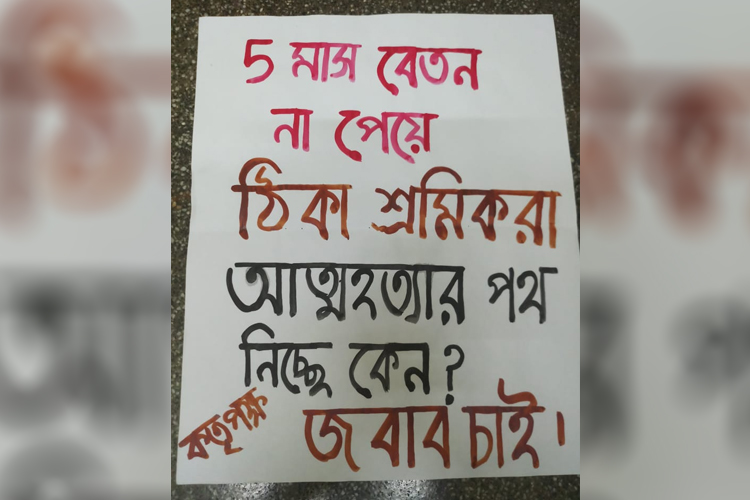 5 মাস বেতন
না পেয়ে
ঠিকা শ্রমিকরা
আত্মহত্যার পথ
নিচ্ছে কেন?
কর্তৃপক্ষ জবাব চাই।